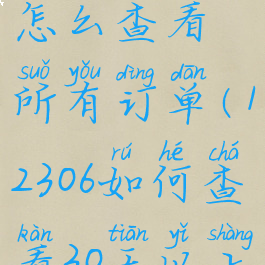 怎么查看
suǒ yǒu dìng dān
所有订单(1
rú hé chá
2306如何查
kàn tiān yǐ shàng
看30天以上